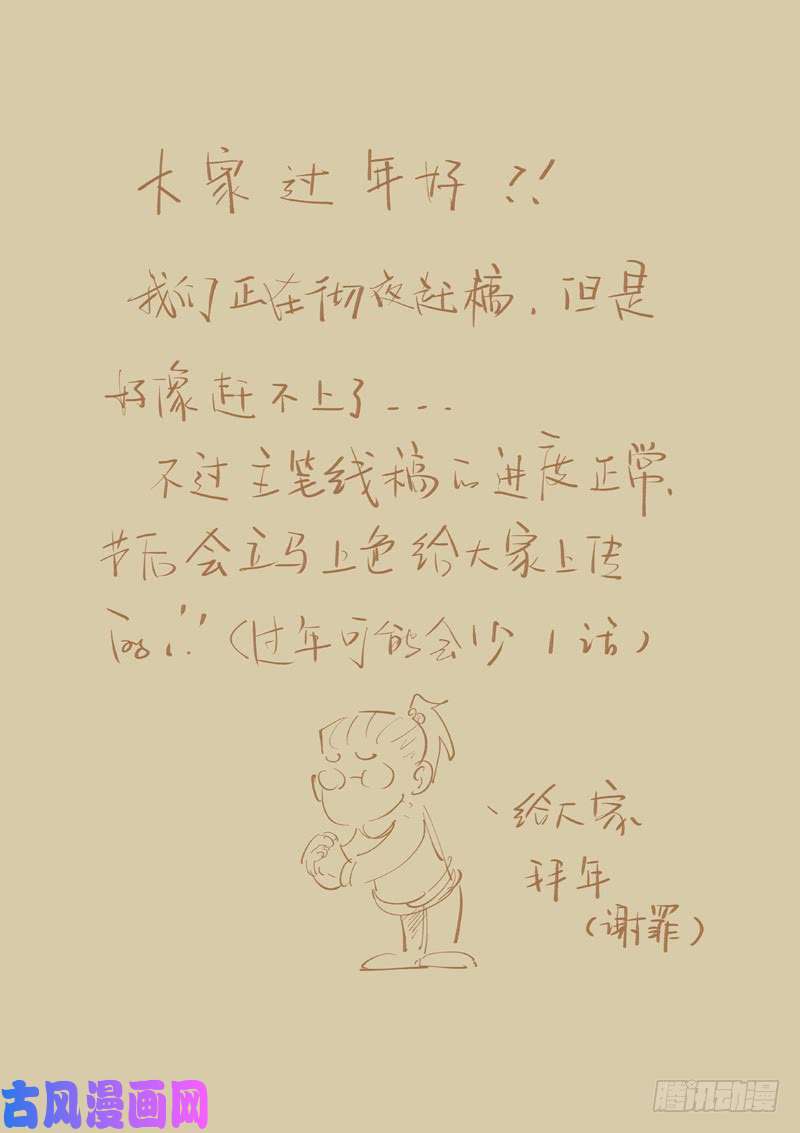 大家过年好?!
我们正在彻夜赶稿.但是
好像赶不上了---
不过主笔线稿的进度正常,
节后会立马上色给大家上传
的!!(过年可能会少1话)
、给大家
拜年
(谢罪)
古风漫画网
腾讯动漫